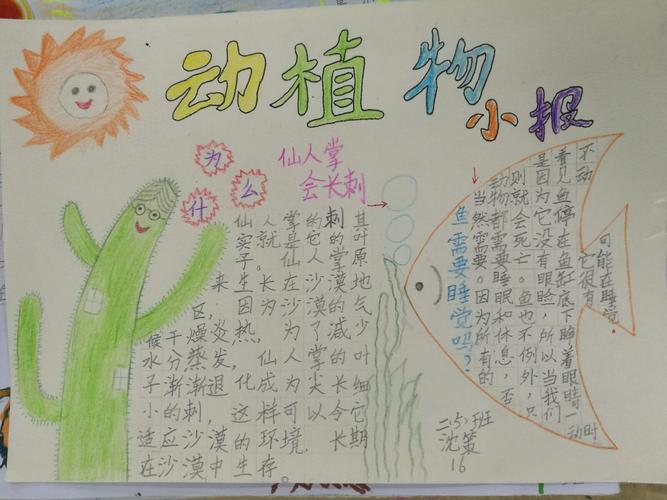 动植物
小报
为什么
仙人掌
会长刺
仙人掌的刺其
实就是它的叶
子。仙人掌原
来生长在沙漠地
区,因为沙漠的气
候干燥炎热,为了减少
水分蒸发,仙人掌的叶
子渐渐退化成尖长细
小的刺,这样可以令它
适应沙漠的环境,长期
在沙漠中生存。
鱼需要睡觉吗?
当然需要。因为所有的
动物都需要睡眠和休息,否
则就会死亡。鱼也不例外,只
是因为它没有眼睑,所以当我们
看见鱼停在鱼缸底下睁着眼睛一动
不动时
它很有
可能在睡觉。
二(5)班
沈策
16